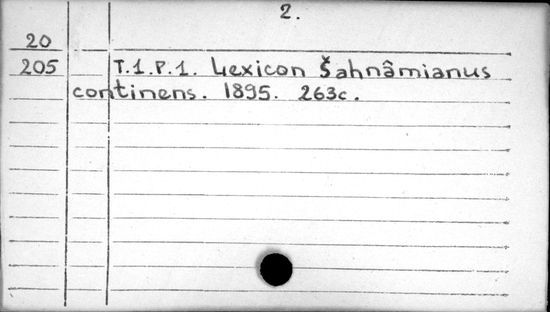 2.
20
205 T.1.P.1. Lexicon Šahnâmianus
continens. 1895. 263c.